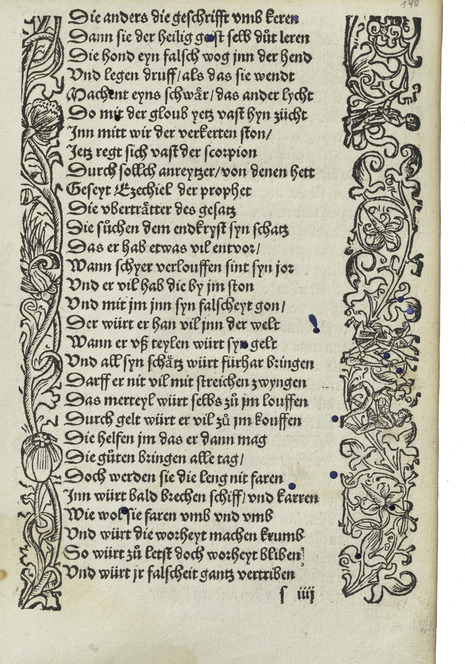 140
Die anders die geschrifft vmb keren
Dann sie der heilig geist selb düt leren
Die hond eyn falsch wog jnn der hend
Vnd legen druff/als das sie wendt
Machent eyns schwår/das ander lycht
Do mit der gloub yetz vast hyn zücht
Jnn mitt wir der verkerten ston/
Jetz regt sich vast der scorpion
Durch sollch anreytzer/von denen hett
Geseyt/Ezechiel der prophet
Die vberträtter des gesatz
Die sůchen dem endkryst syn schatz
Das er hab etwas vil entvor/
Wann schyer verlouffen sint syn jor
Vnd er vil hab die by jm ston
Vnd mit jm jnn syn falscheyt gon/
Der würt er han vil jnn der welt
Wann er vß teylen würt syn gelt
Vnd all syn schåtz würt fürhar bringen
Darff er nit vil mit streichen zwyngen
Das merteyl würt selbs zů jm louffen
Durch gelt würt er vil zů jm kouffen
Die helfen jm das er dann mag
Die gůten bringen alle tag/
Doch werden sie die leng nit faren
Jnn würt bald brechen schiff/vnd karren
Wie wol sie faren vmb vnd vmb
Vnd würt die worheyt machen krumb
So würt zů letst doch worheyt bliben
Vnd würt jr falscheit gantz vertriben
s iiij